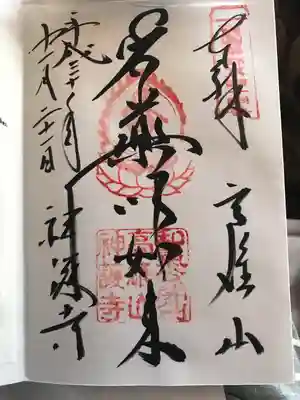 奉拝 高雄山
薬師如来
平成三十年
十一月二十一日 神護寺
高雄山
神護寺